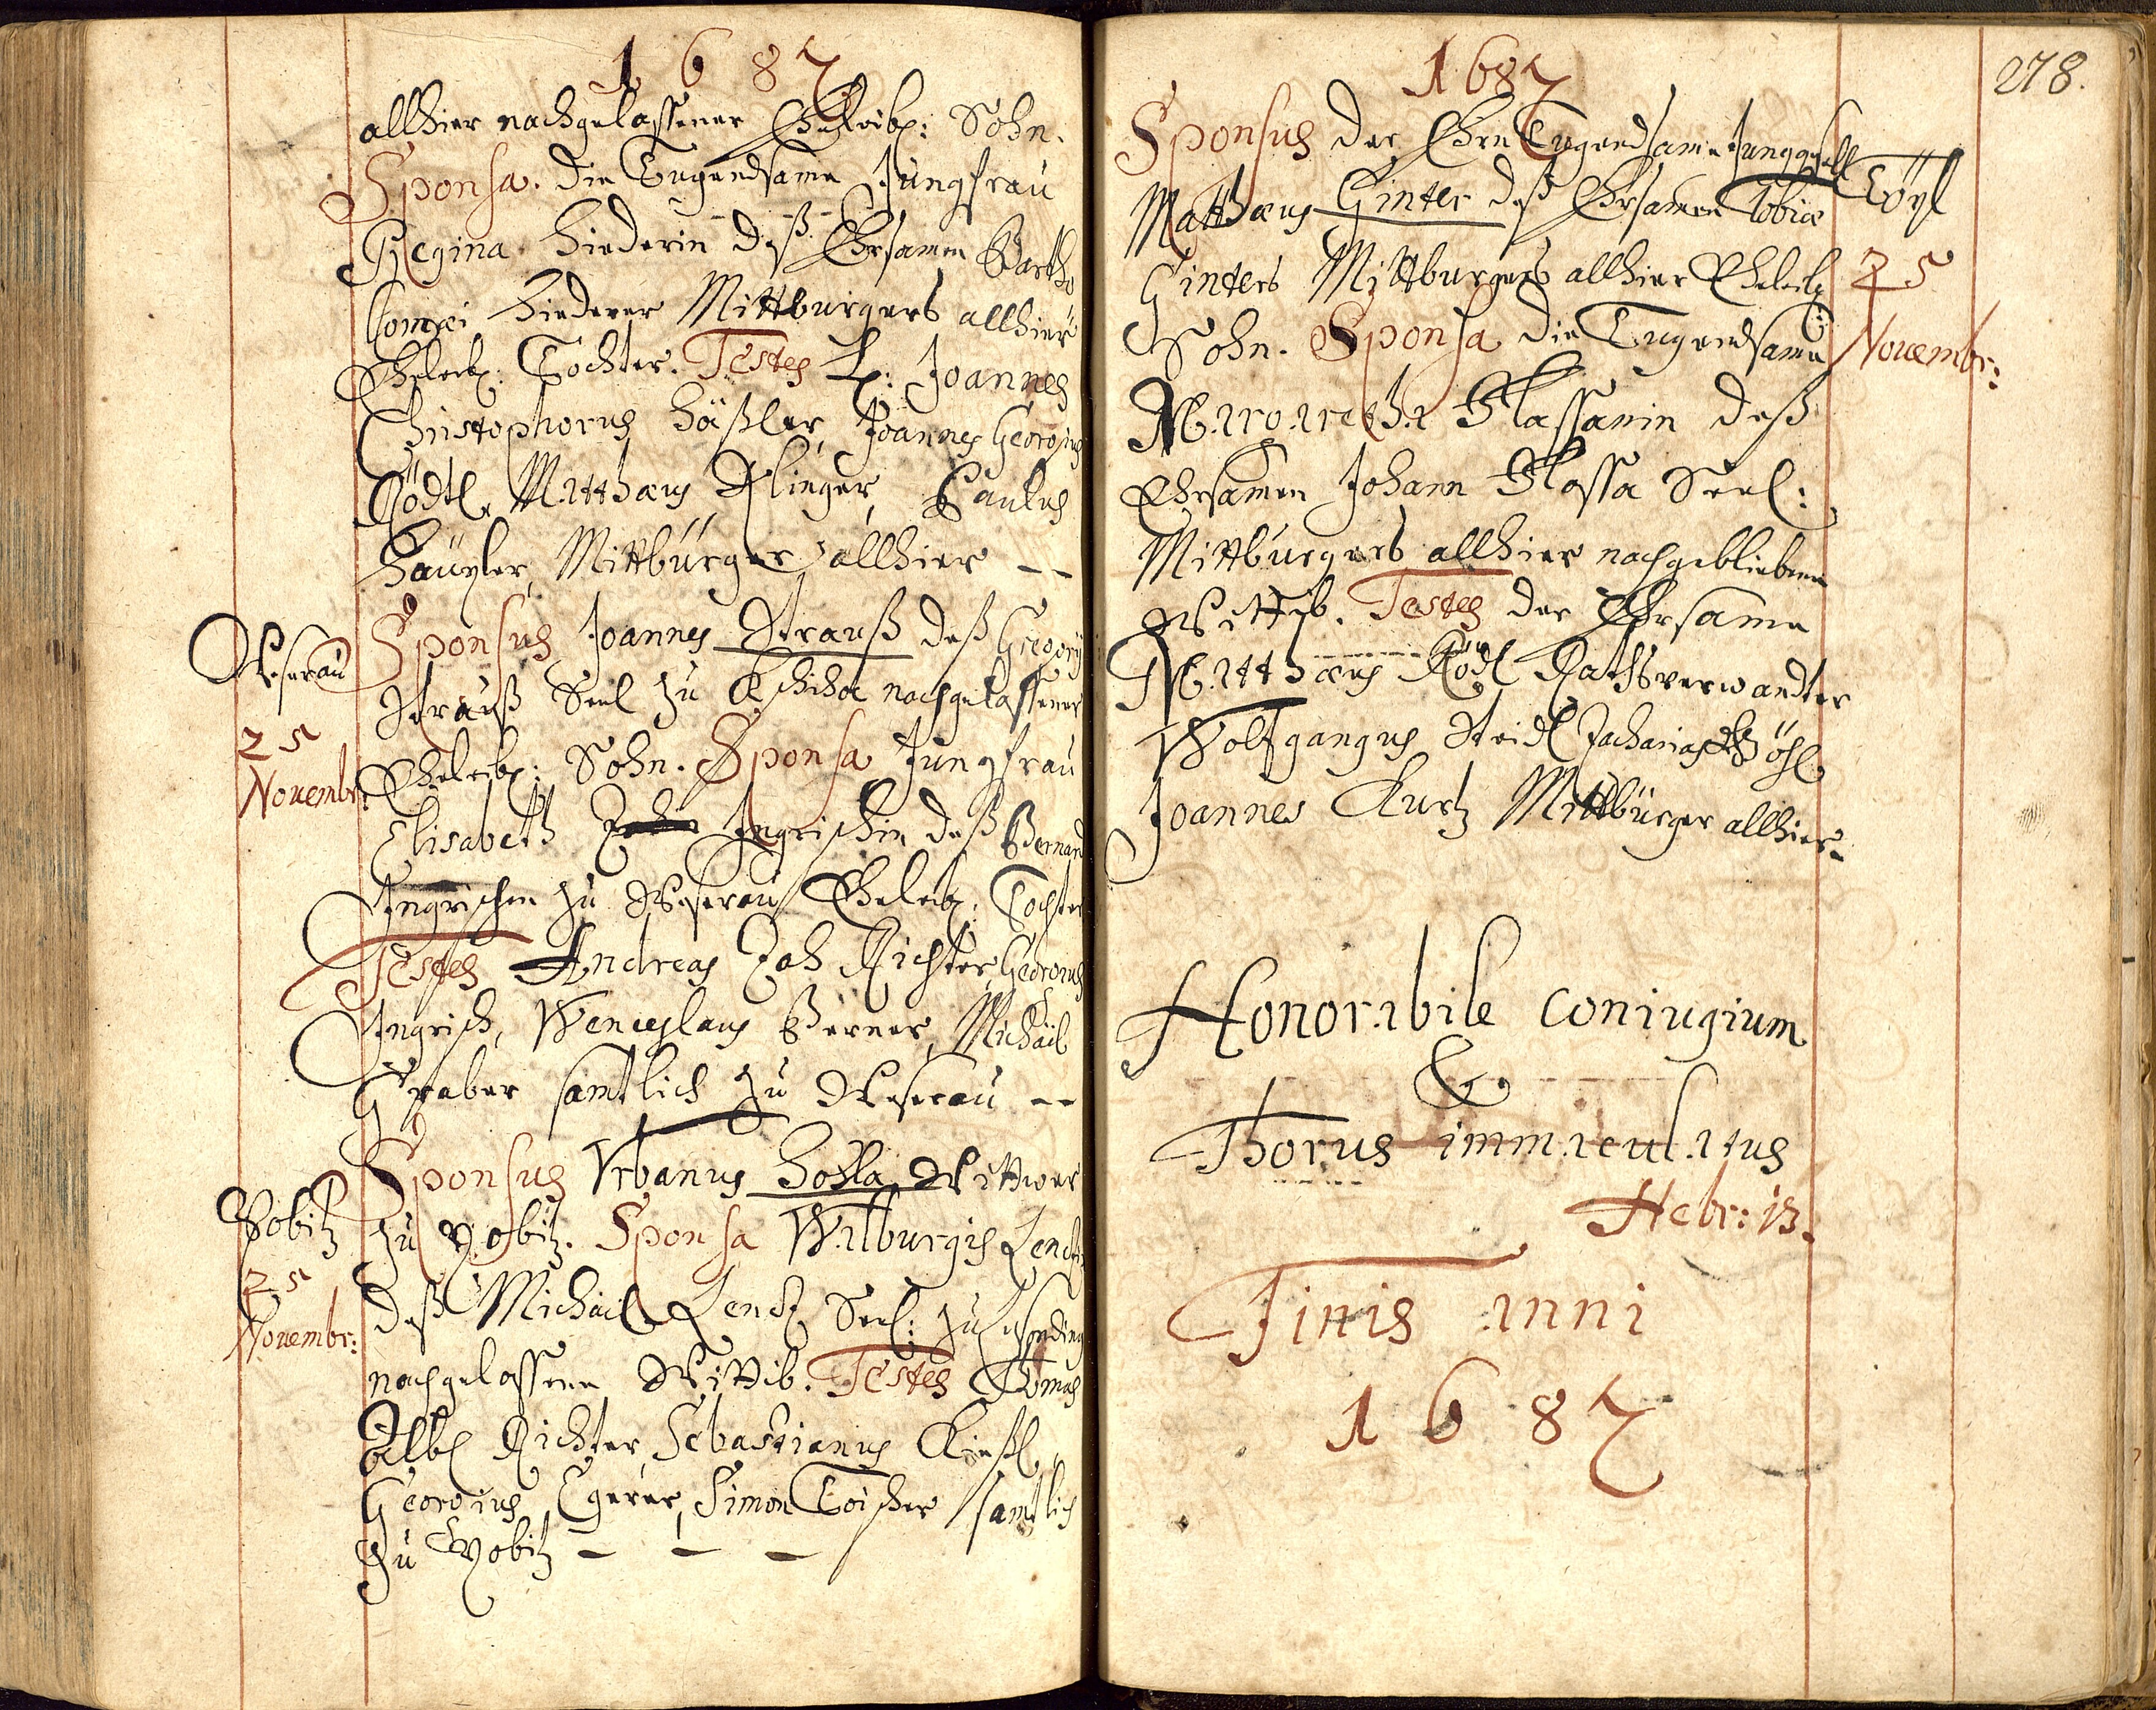 1687
allhier nachgelassener Eheleibl: Sohn.
Sponsa. die Tugendsame Jungfrau
Regina Hiederin deß Ehrsamen Bartho
lomæi Hiederer Mittburgers allhier
Eheleibl: Tochter. Testes H: Joannes
Christophorus Häßler, Joannes Georgius
Rödtl, Matthæus Klinger, Paulus
Häußler, Mittburger allhier --
Weserau
25
Novembr:
Sponsus Joannes Strauß deß Gregory
Strauß Seel zu nachgelassener
Eheleibl: Sohn. Sponsa Jungfrau
Elisabeth Ingrischin deß Bernard
Ingrischen zu Weserau Eheleibl: Tochter
Testes Andreas Zah Richter, Georgius
Ingrisch, Wenceslaus Berner, Michäil
Graber sämtlich zu Weserau --
Wobitz
25
Novembr:
Sponsus Vrbanus Hoßla Wittwer
zu Wobitz. Sponsa Walburgis
deß Michäil Seel: zu
nachgelassene Wittib. Testes Thomas
Albl Richter, Sebastianus Kießl,
Georgius Egerer, Simon Toischer sämtlich
zu Wobitz - - -
1687
278.
Sponsus der Ehrn Tugendsame Junggsell
Matthæus Ginter deß Ehrsamen Tobiæ
Ginters Mittburgers allhier Eheleibl
Sohn. Sponsa die Tugendsame
Töyl
25
Novembr:
Margaretha Klassanin deß
Ehrsamen Johann Klassa Seel:
Mittburgers allhier nachgebliebene
Wittib. Testes der Ehrsame
Matthæus Rödl Rathsverwandter
Wolfgangus Steidl Zacharias
Joannes Kurtz Mittbürger allhier-
Honorabile coniugium
&
Thorus immaculatus
Hebr: 13.
Finis anni
1687